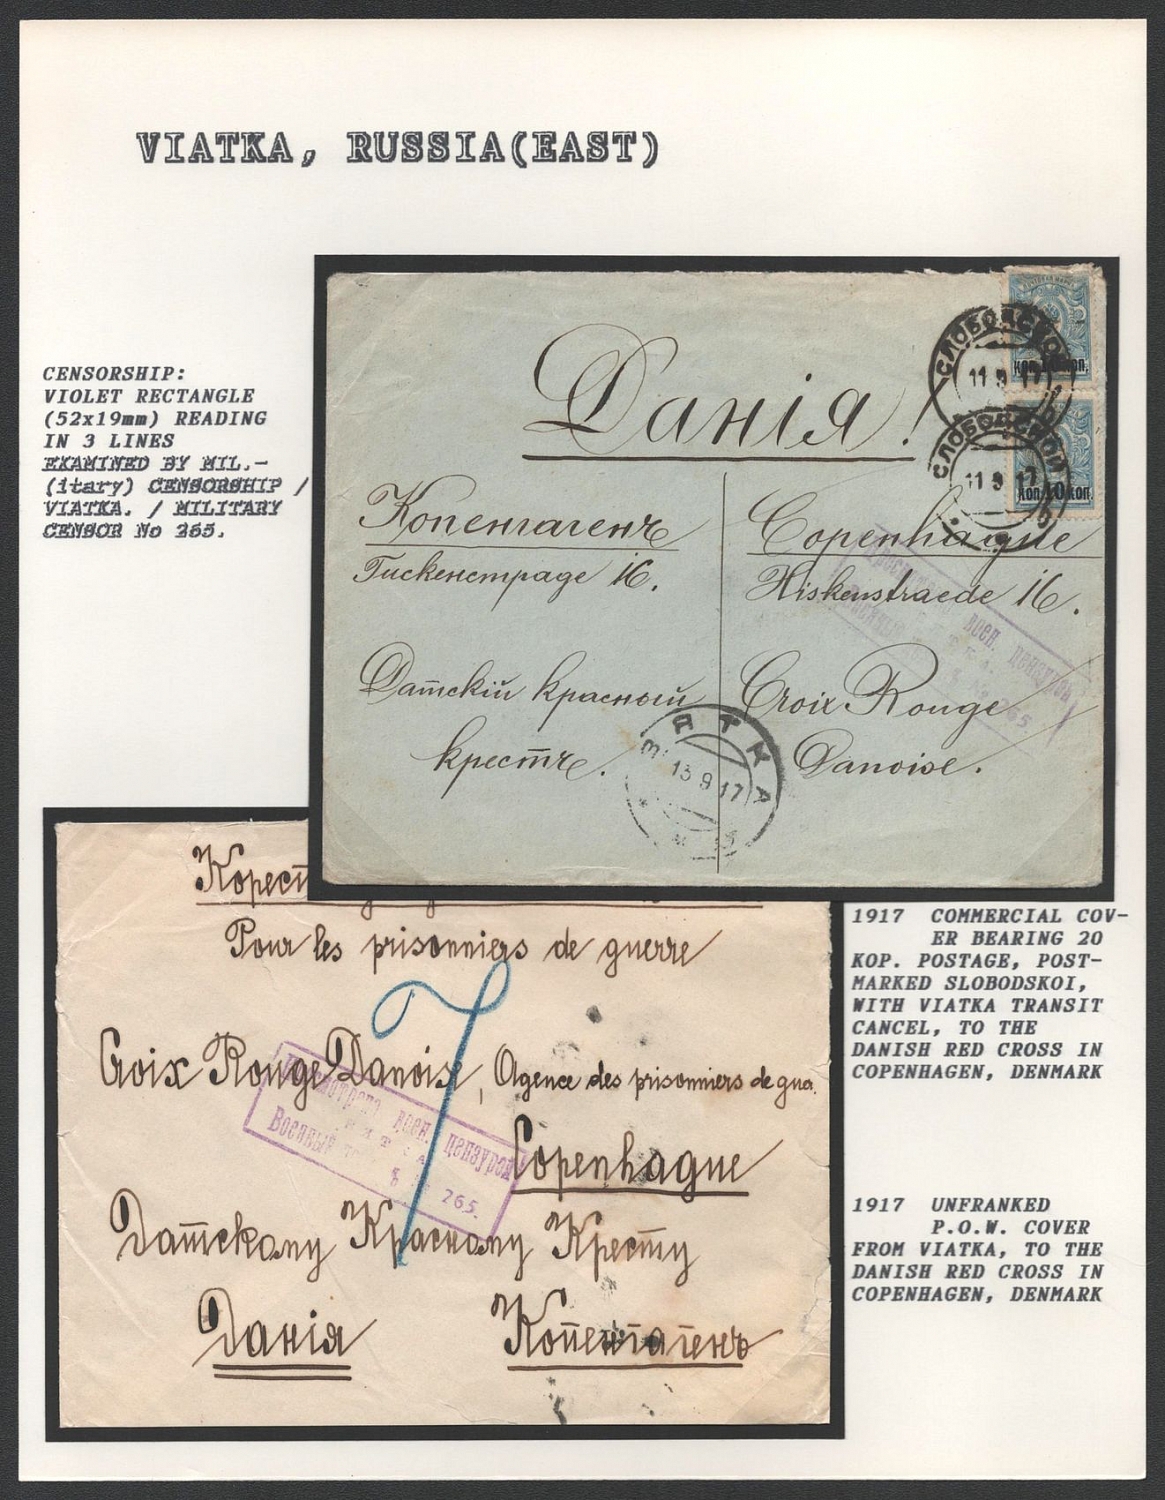 VIATKA, RUSSIA(EAST)
CENSORSHIP:
VIOLET RECTANGLE
(52x19mm) READING
IN 3 LINES
EXAMINED BY MIL.-
(itary) CENSORSHIP /
VIATKA. / MILITARY
CENSOR No 265.
СЛОБОДСКОЙ
11 9 17
коп. коп.
СЛОБОДСКОЙ
11 9 17
коп. 10 коп.
Данія!
Копенгагенъ
Copenhague
Гискенстраде 16.
Hiskenstraede 16.
воен. цензурой
265.
Датскій красный
Croix Rouge
крестъ.
Danoise.
ВЯТКА
13 9 17
Корест
Pour les prisonniers de guerre
Croix Rouge Danoise, Agence des prisonniers de gua.
воен. цензурой
Военный
265.
Copenhague
Датскому Красному Кресту
Данія
Копенгагенъ
1917 COMMERCIAL COV-
ER BEARING 20
KOP. POSTAGE, POST-
MARKED SLOBODSKOI,
WITH VIATKA TRANSIT
CANCEL, TO THE
DANISH RED CROSS IN
COPENHAGEN, DENMARK
1917 UNFRANKED
P.O.W. COVER
FROM VIATKA, TO THE
DANISH RED CROSS IN
COPENHAGEN, DENMARK